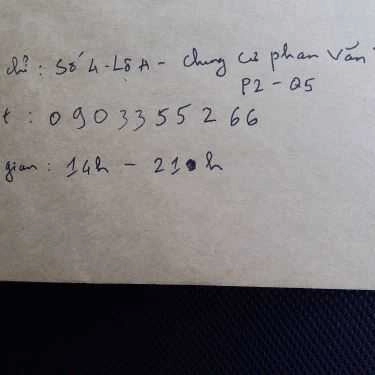 chỉ: Số 4-Lô A - Chung cư phan Văn
P2 - Q5
t : 0903355266
gian : 14h - 21h